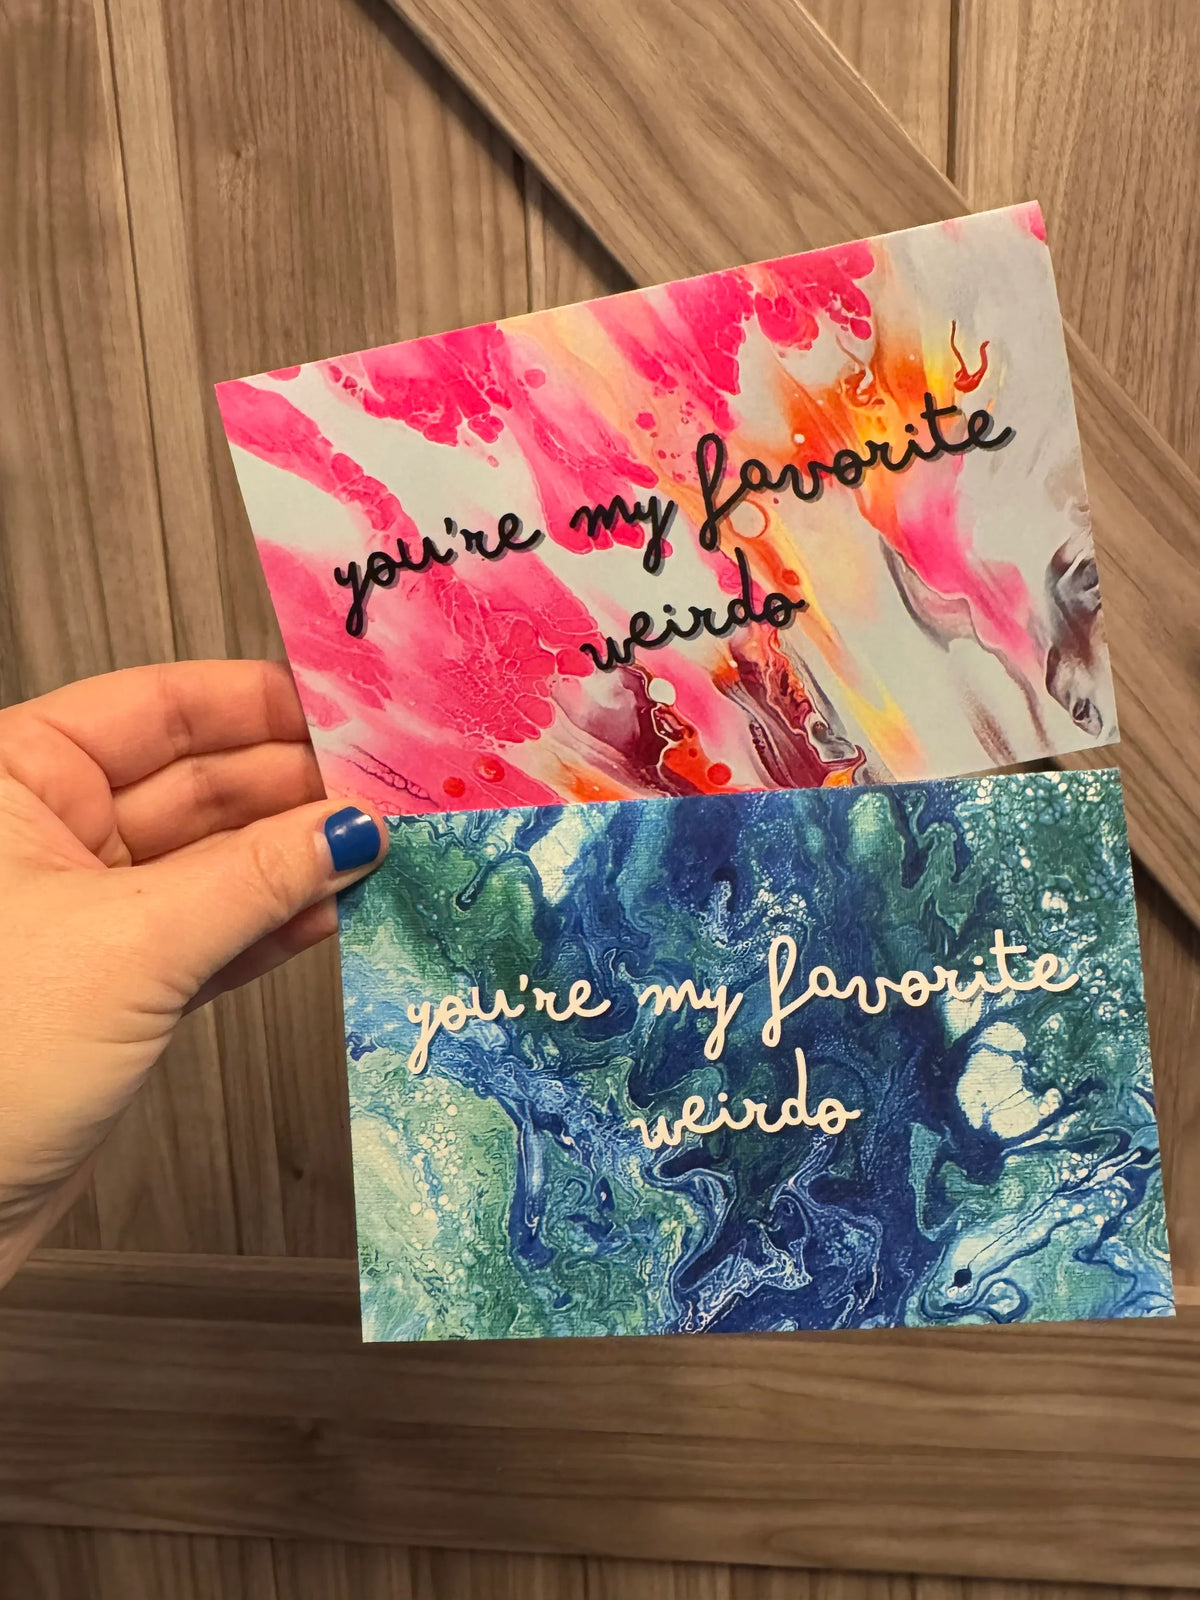 you're my favorite
weirdo
you're my favorite
weirdo